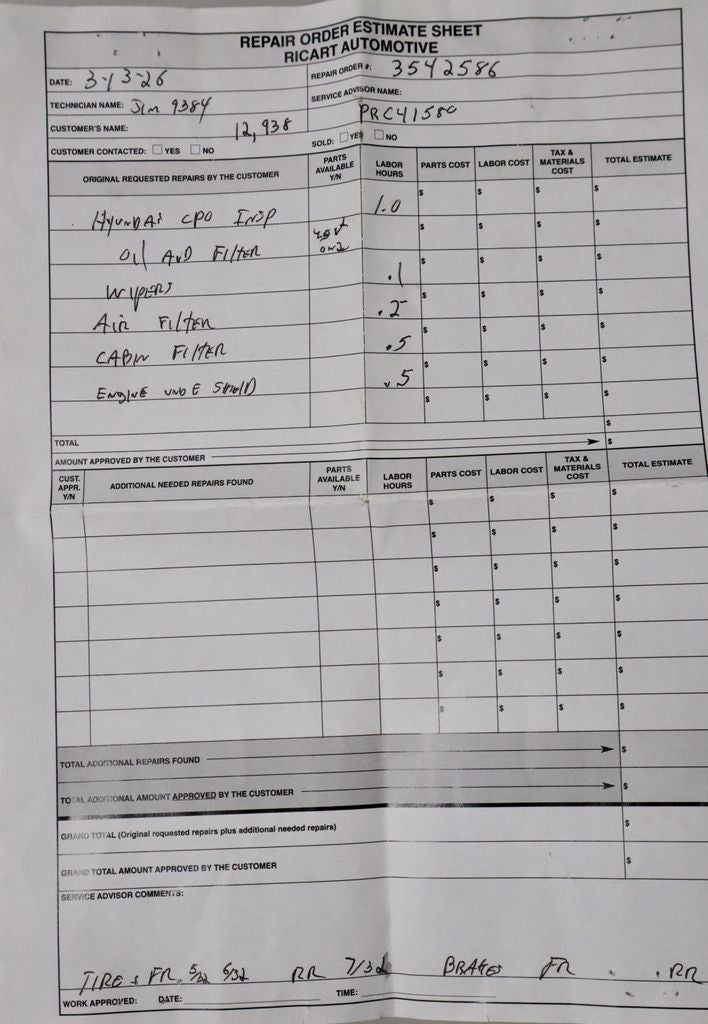 REPAIR ORDER ESTIMATE SHEET
RICART AUTOMOTIVE
DATE: 3-13-26
REPAIR ORDER #: 3542586
TECHNICIAN NAME: Jim 9384
SERVICE ADVISOR NAME:
PRC41580
CUSTOMER'S NAME:
12,938
CUSTOMER CONTACTED: ☐ YES ☐ NO
SOLD: ☐ YES ☐ NO
ORIGINAL REQUESTED REPAIRS BY THE CUSTOMER PARTS AVAILABLE Y/N LABOR HOURS PARTS COST LABOR COST TAX & MATERIALS COST TOTAL ESTIMATE
HYUNDAI CPO INSP 1.0 $ $ $ $
OIL AND FILTER $ $ $ $
WIPERS .1 $ $ $ $
AIR FILTER .2 $ $ $ $
CABIN FILTER .5 $ $ $ $
ENGINE UNDE SHIELD .5 $ $ $ $
$ $ $ $
TOTAL $
AMOUNT APPROVED BY THE CUSTOMER $
CUST. APPR. Y/N ADDITIONAL NEEDED REPAIRS FOUND PARTS AVAILABLE Y/N LABOR HOURS PARTS COST LABOR COST TAX & MATERIALS COST TOTAL ESTIMATE
$ $ $ $
$ $ $ $
$ $ $ $
$ $ $ $
$ $ $ $
$ $ $ $
$ $ $ $
TOTAL ADDITIONAL REPAIRS FOUND $
TOTAL ADDITIONAL AMOUNT APPROVED BY THE CUSTOMER $
GRAND TOTAL (Original requested repairs plus additional needed repairs) $
GRAND TOTAL AMOUNT APPROVED BY THE CUSTOMER $
SERVICE ADVISOR COMMENTS:
TIRES FR 5/32 6/32 RR 7/32 BRAKES FR RR
WORK APPROVED: DATE: TIME: